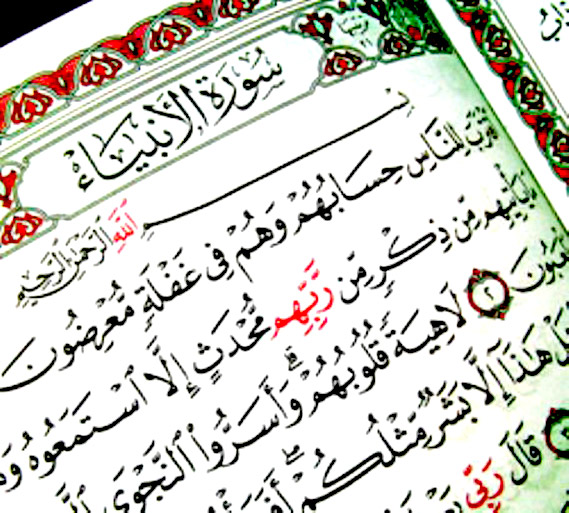 سُورَةُ الأَنبِيَاءِ
بِسْمِ اللَّهِ الرَّحْمَٰنِ الرَّحِيمِ
لِلنَّاسِ حِسَابُهُمْ وَهُمْ فِي غَفْلَةٍ مُّعْرِضُونَ
يَأْتِيهِم مِّن ذِكْرٍ مِّن رَّبِّهِم مُّحْدَثٍ إِلَّا ٱسْتَمَعُوهُ
٢ لَاهِيَةً قُلُوبُهُمْ ۗ وَأَسَرُّوا۟ ٱلنَّجْوَى
هَٰذَآ إِلَّا بَشَرٌ مِّثْلُكُمْ ۖ
قَالَ رَبِّى